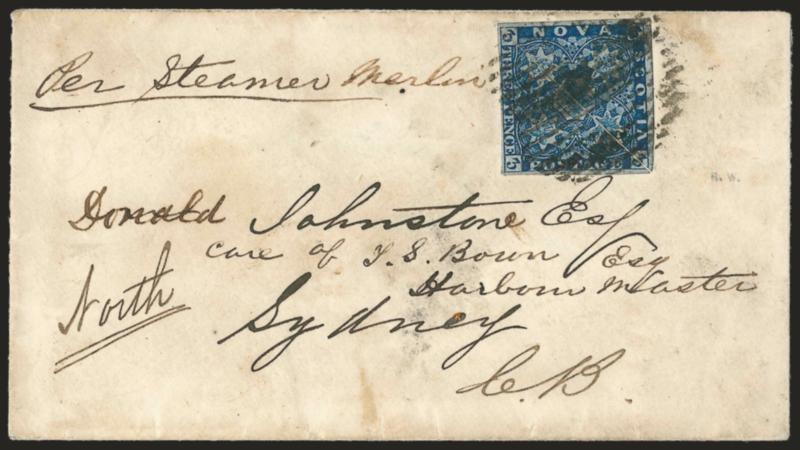 Per Steamer Merlin
NOVA SCOTIA
THREE PENCE
POSTAGE
Donald Johnstone Esq
care of T. S. Bown Esq
Harbour Master
North
Sydney
C.B